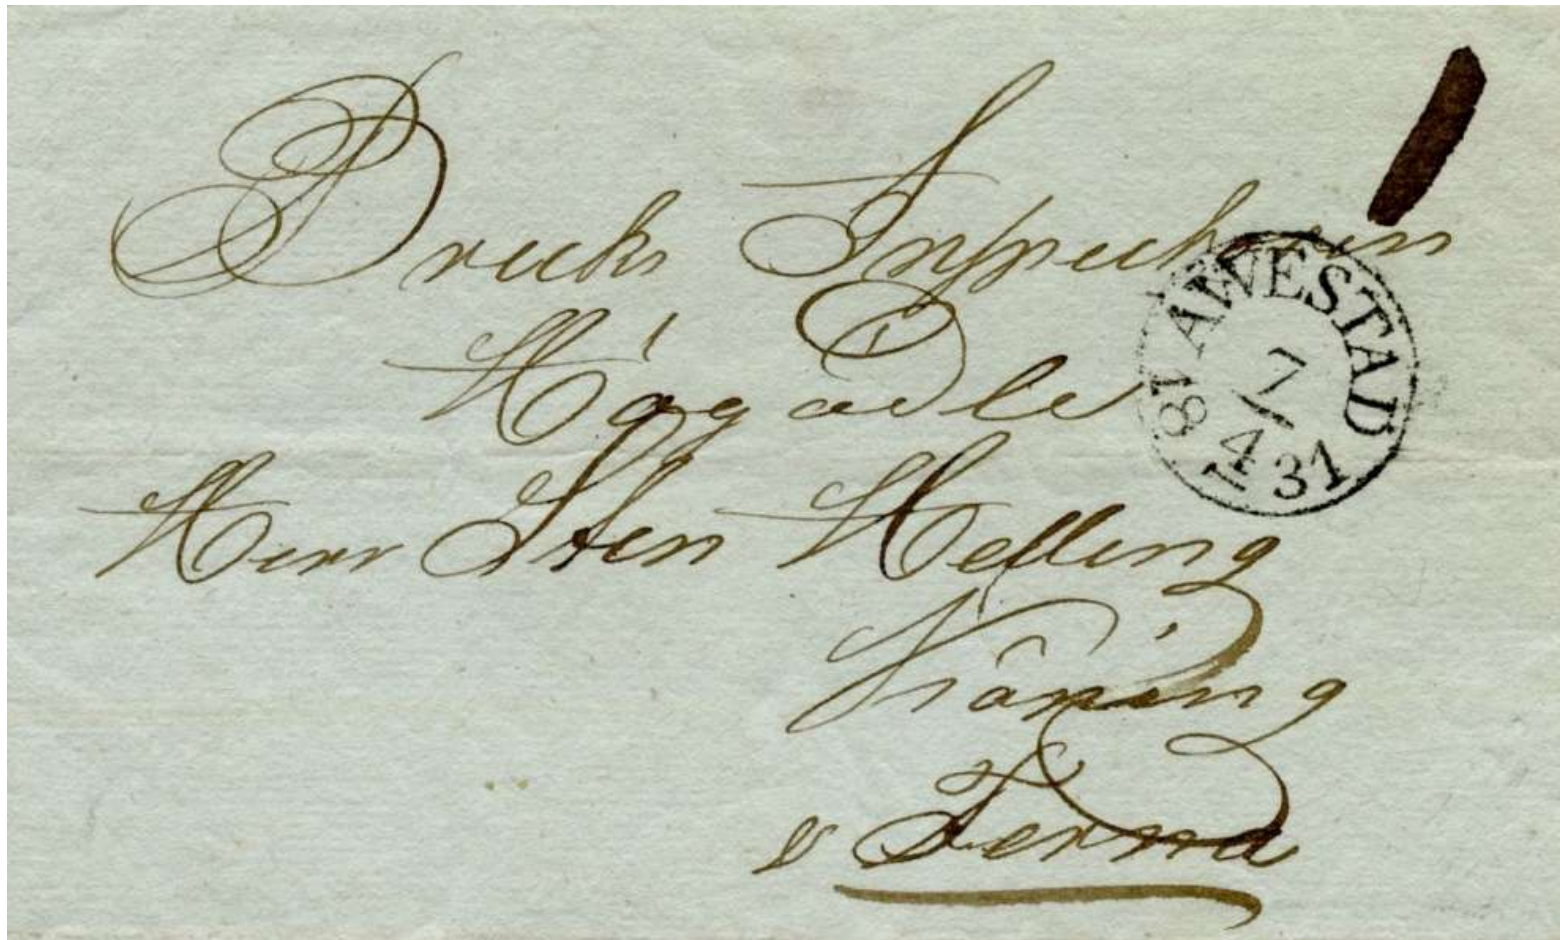 Brucks Inspectoren
Högädle
Herr Sten Helling
Ferna
AWESTAD
7
4
18 31